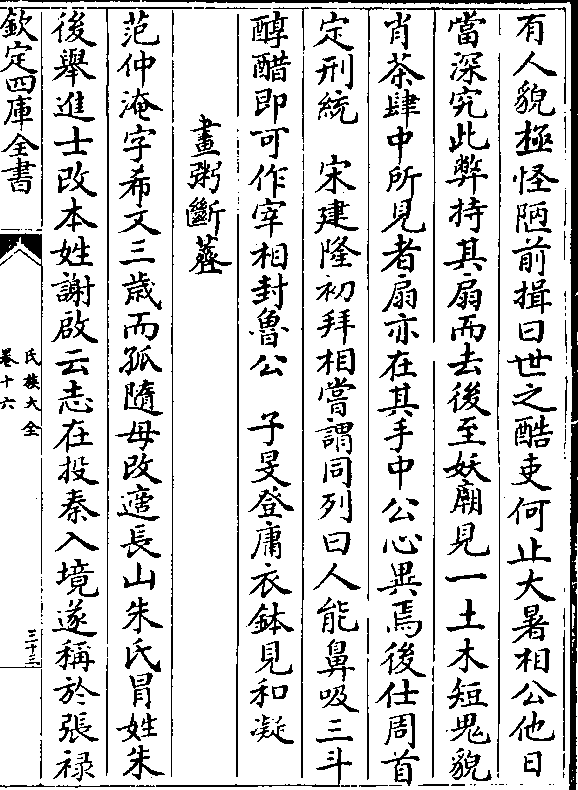 有人貌極怪陋前揖曰世之酷吏何止大暑相公他日
當深究此弊持其扇而去後至妖廟見一土木短鬼貌
肖茶肆中所見者扇亦在其手中公心異焉後仕周首
定刑統　宋建隆初拜相嘗謂同列曰人能鼻吸三斗
醇醋即可作宰相封魯公　子旻登庸衣鉢見和凝
畫粥斷虀
范仲淹字希文三歲而孤隨母改適長山朱氏冒姓朱
後舉進士改本姓謝啟云志在投秦入境遂稱於張祿
欽定四庫全書
氏族大全
卷十六
三十三